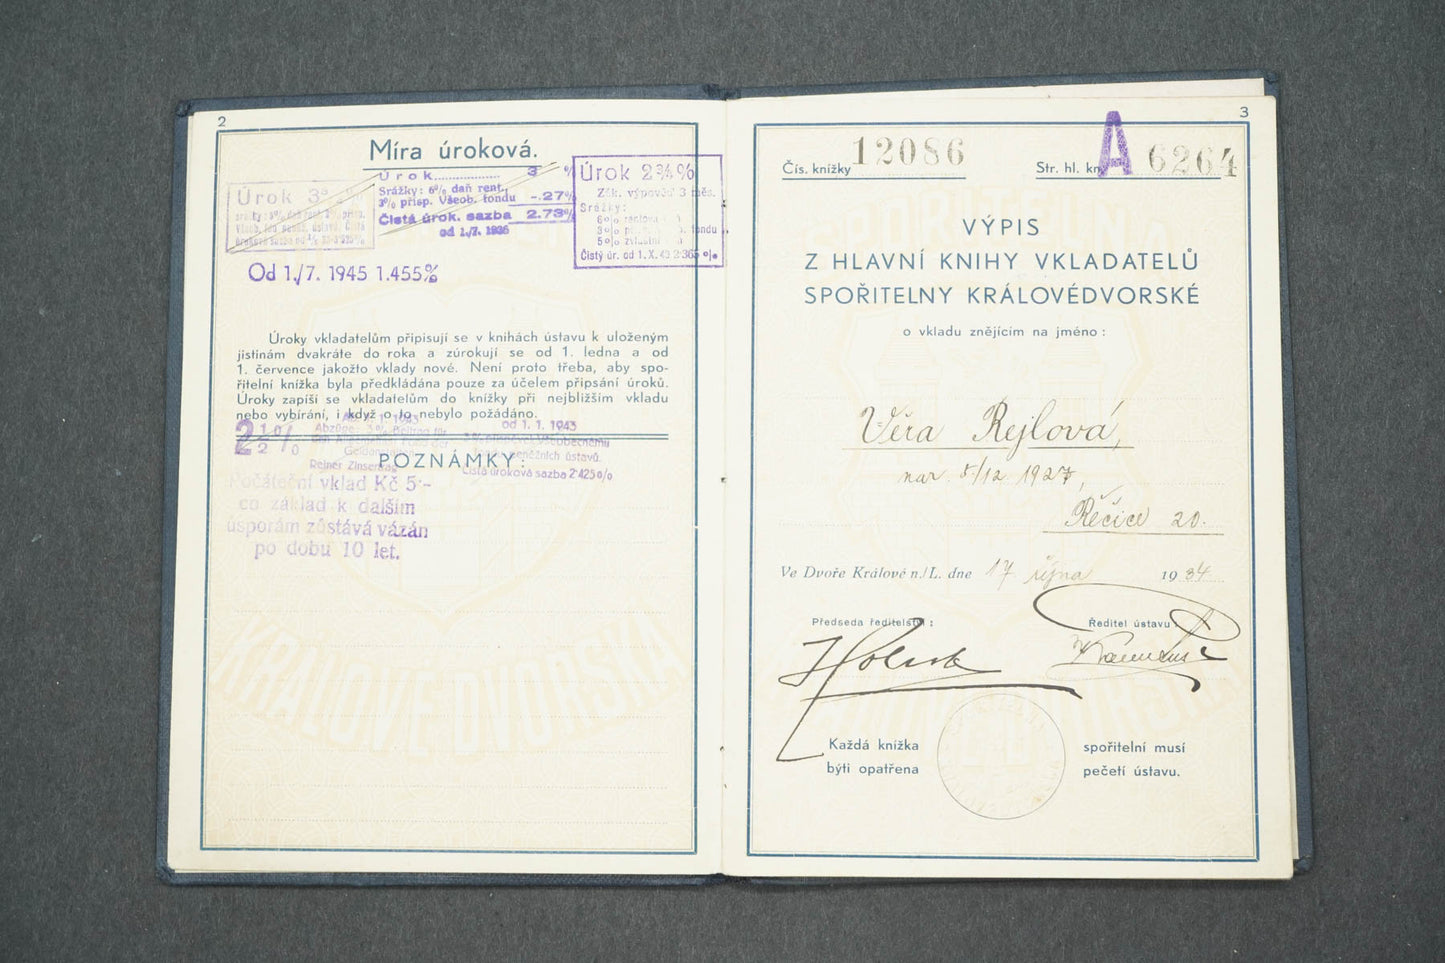 2
Míra úroková.
Úrok 3
Úrok 3 %
Srážky: 6% daň rent.
3% přísp. Všeob. fondu -.27%
Čistá úrok. sazba 2.73%
od 1./7. 1936
Úrok 2¾%
Zák. výpověď 3 měs.
Srážky:
6%
3% fondu
5%
Čistý úr. od 1. X.
Od 1./7. 1945 1.455%
Úroky vkladatelům připisují se v knihách ústavu k uloženým
jistinám dvakráte do roka a zúrokují se od 1. ledna a od
1. července jakožto vklady nové. Není proto třeba, aby spo-
řitelní knížka byla předkládána pouze za účelem připsání úroků.
Úroky zapíší se vkladatelům do knížky při nejbližším vkladu
nebo vybírání, i když o to nebylo požádáno.
2½%
od 1. 1. 1943
Abzüge: 3% Beitrag für
Reiner Zinsertrag
Čistá úroková sazba 2·425%
POZNÁMKY:
Počáteční vklad Kč 5·-
co základ k dalším
úsporám zůstává vázán
po dobu 10 let.
3
Čís. knížky 12086
Str. hl. kn. A 6264
VÝPIS
Z HLAVNÍ KNIHY VKLADATELŮ
SPOŘITELNY KRÁLOVÉDVORSKÉ
o vkladu znějícím na jméno:
Věra Rejlová,
nar. 5/12 1927,
Řečice 20.
Ve Dvoře Králové n./L. dne 17 října 1934
Předseda ředitelství:
Ředitel ústavu:
Každá knížka spořitelní musí
býti opatřena pečetí ústavu.
KRÁLOVÉDVORSKÁ